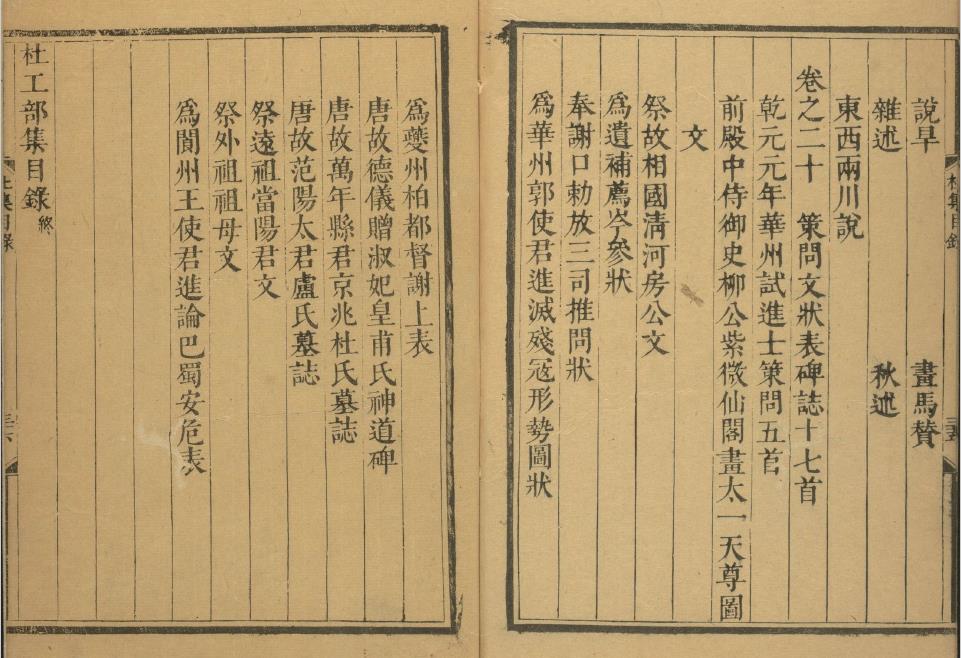 説旱 畫馬贊
雜述 秋述
東西兩川說
卷之二十 策問文狀表碑誌十七首
乾元元年華州試進士策問五首
前殿中侍御史柳公紫微仙閣畫太一天尊圖
文
祭故相國淸河房公文
爲遺補薦岑參狀
奉謝口勅放三司推問狀
爲華州郭使君進滅殘寇形勢圖狀
爲夔州柏都督謝上表
唐故德儀贈淑妃皇甫氏神道碑
唐故萬年縣君京兆杜氏墓誌
唐故范陽太君盧氏墓誌
祭遠祖當陽君文
祭外祖祖母文
爲閬州王使君進論巴蜀安危表
杜工部集目錄終
杜集目錄